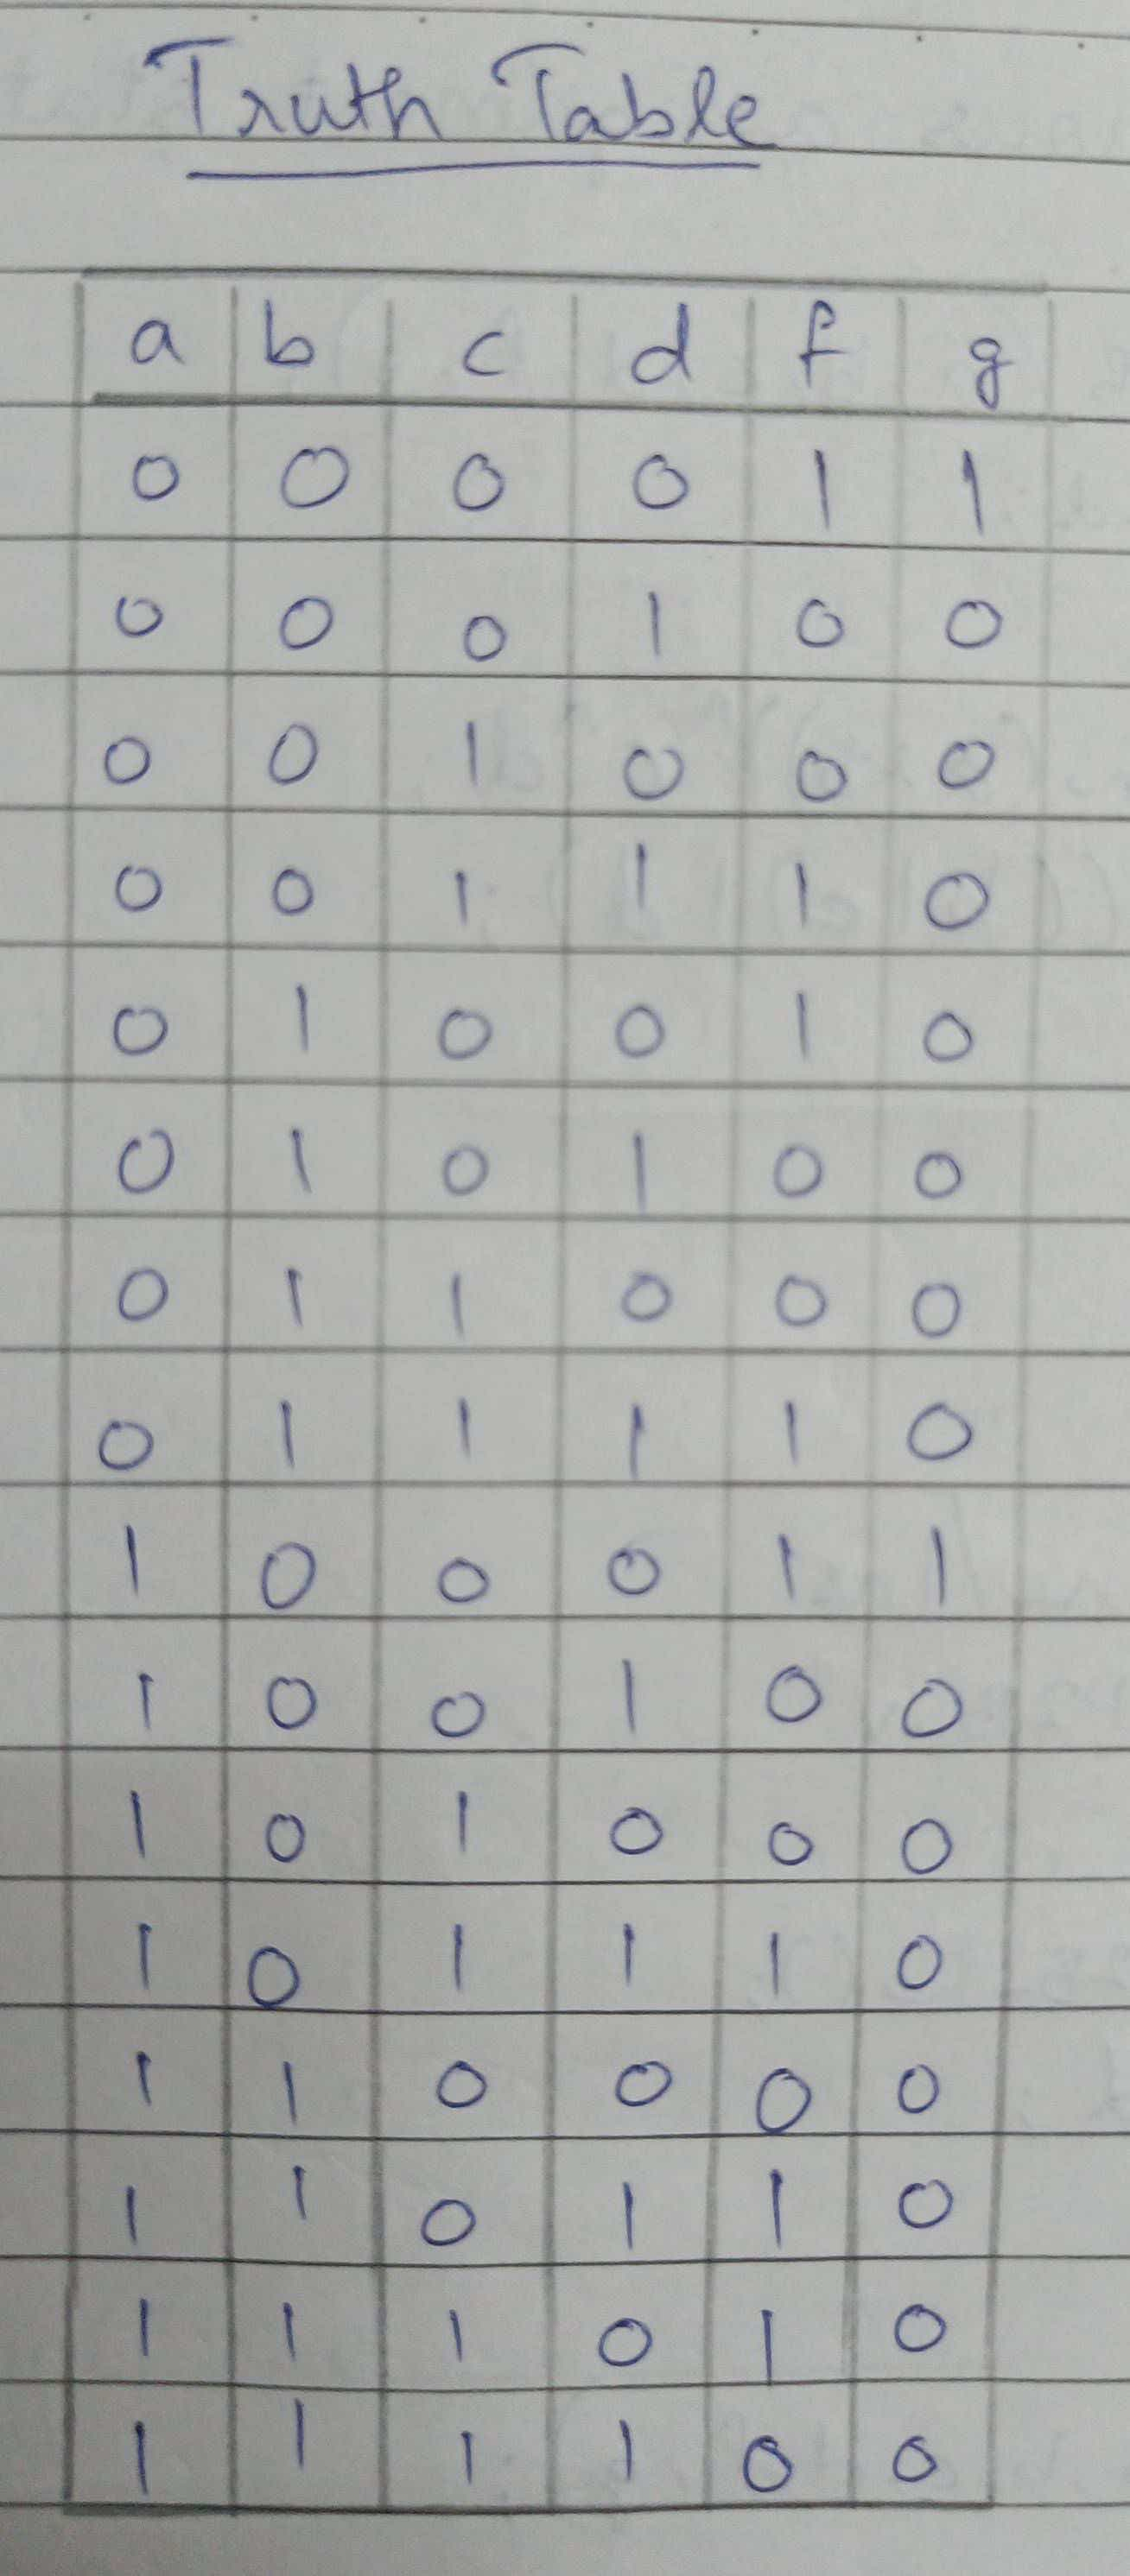 Truth Table
a b c d f g
0 0 0 0 1 1
0 0 0 1 0 0
0 0 1 0 0 0
0 0 1 1 1 0
0 1 0 0 1 0
0 1 0 1 0 0
0 1 1 0 0 0
0 1 1 1 1 0
1 0 0 0 1 1
1 0 0 1 0 0
1 0 1 0 0 0
1 0 1 1 1 0
1 1 0 0 0 0
1 1 0 1 1 0
1 1 1 0 1 0
1 1 1 1 0 0